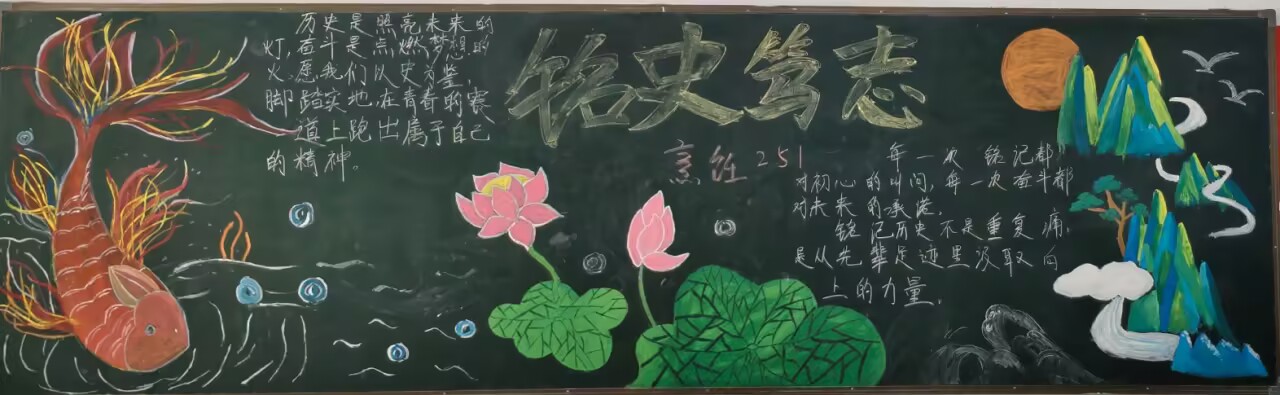 历史是照亮未来的
灯,奋斗是点燃梦想的
火。愿我们以史为鉴,
脚踏实地,在青春的赛
道上跑出属于自己
的精神。
铭史笃志
烹饪251
每一次铭记都
对初心的叫问,每一次奋斗都
对未来的承诺。
铭记历史不是重复痛,
是从先辈足迹里汲取向
上的力量。